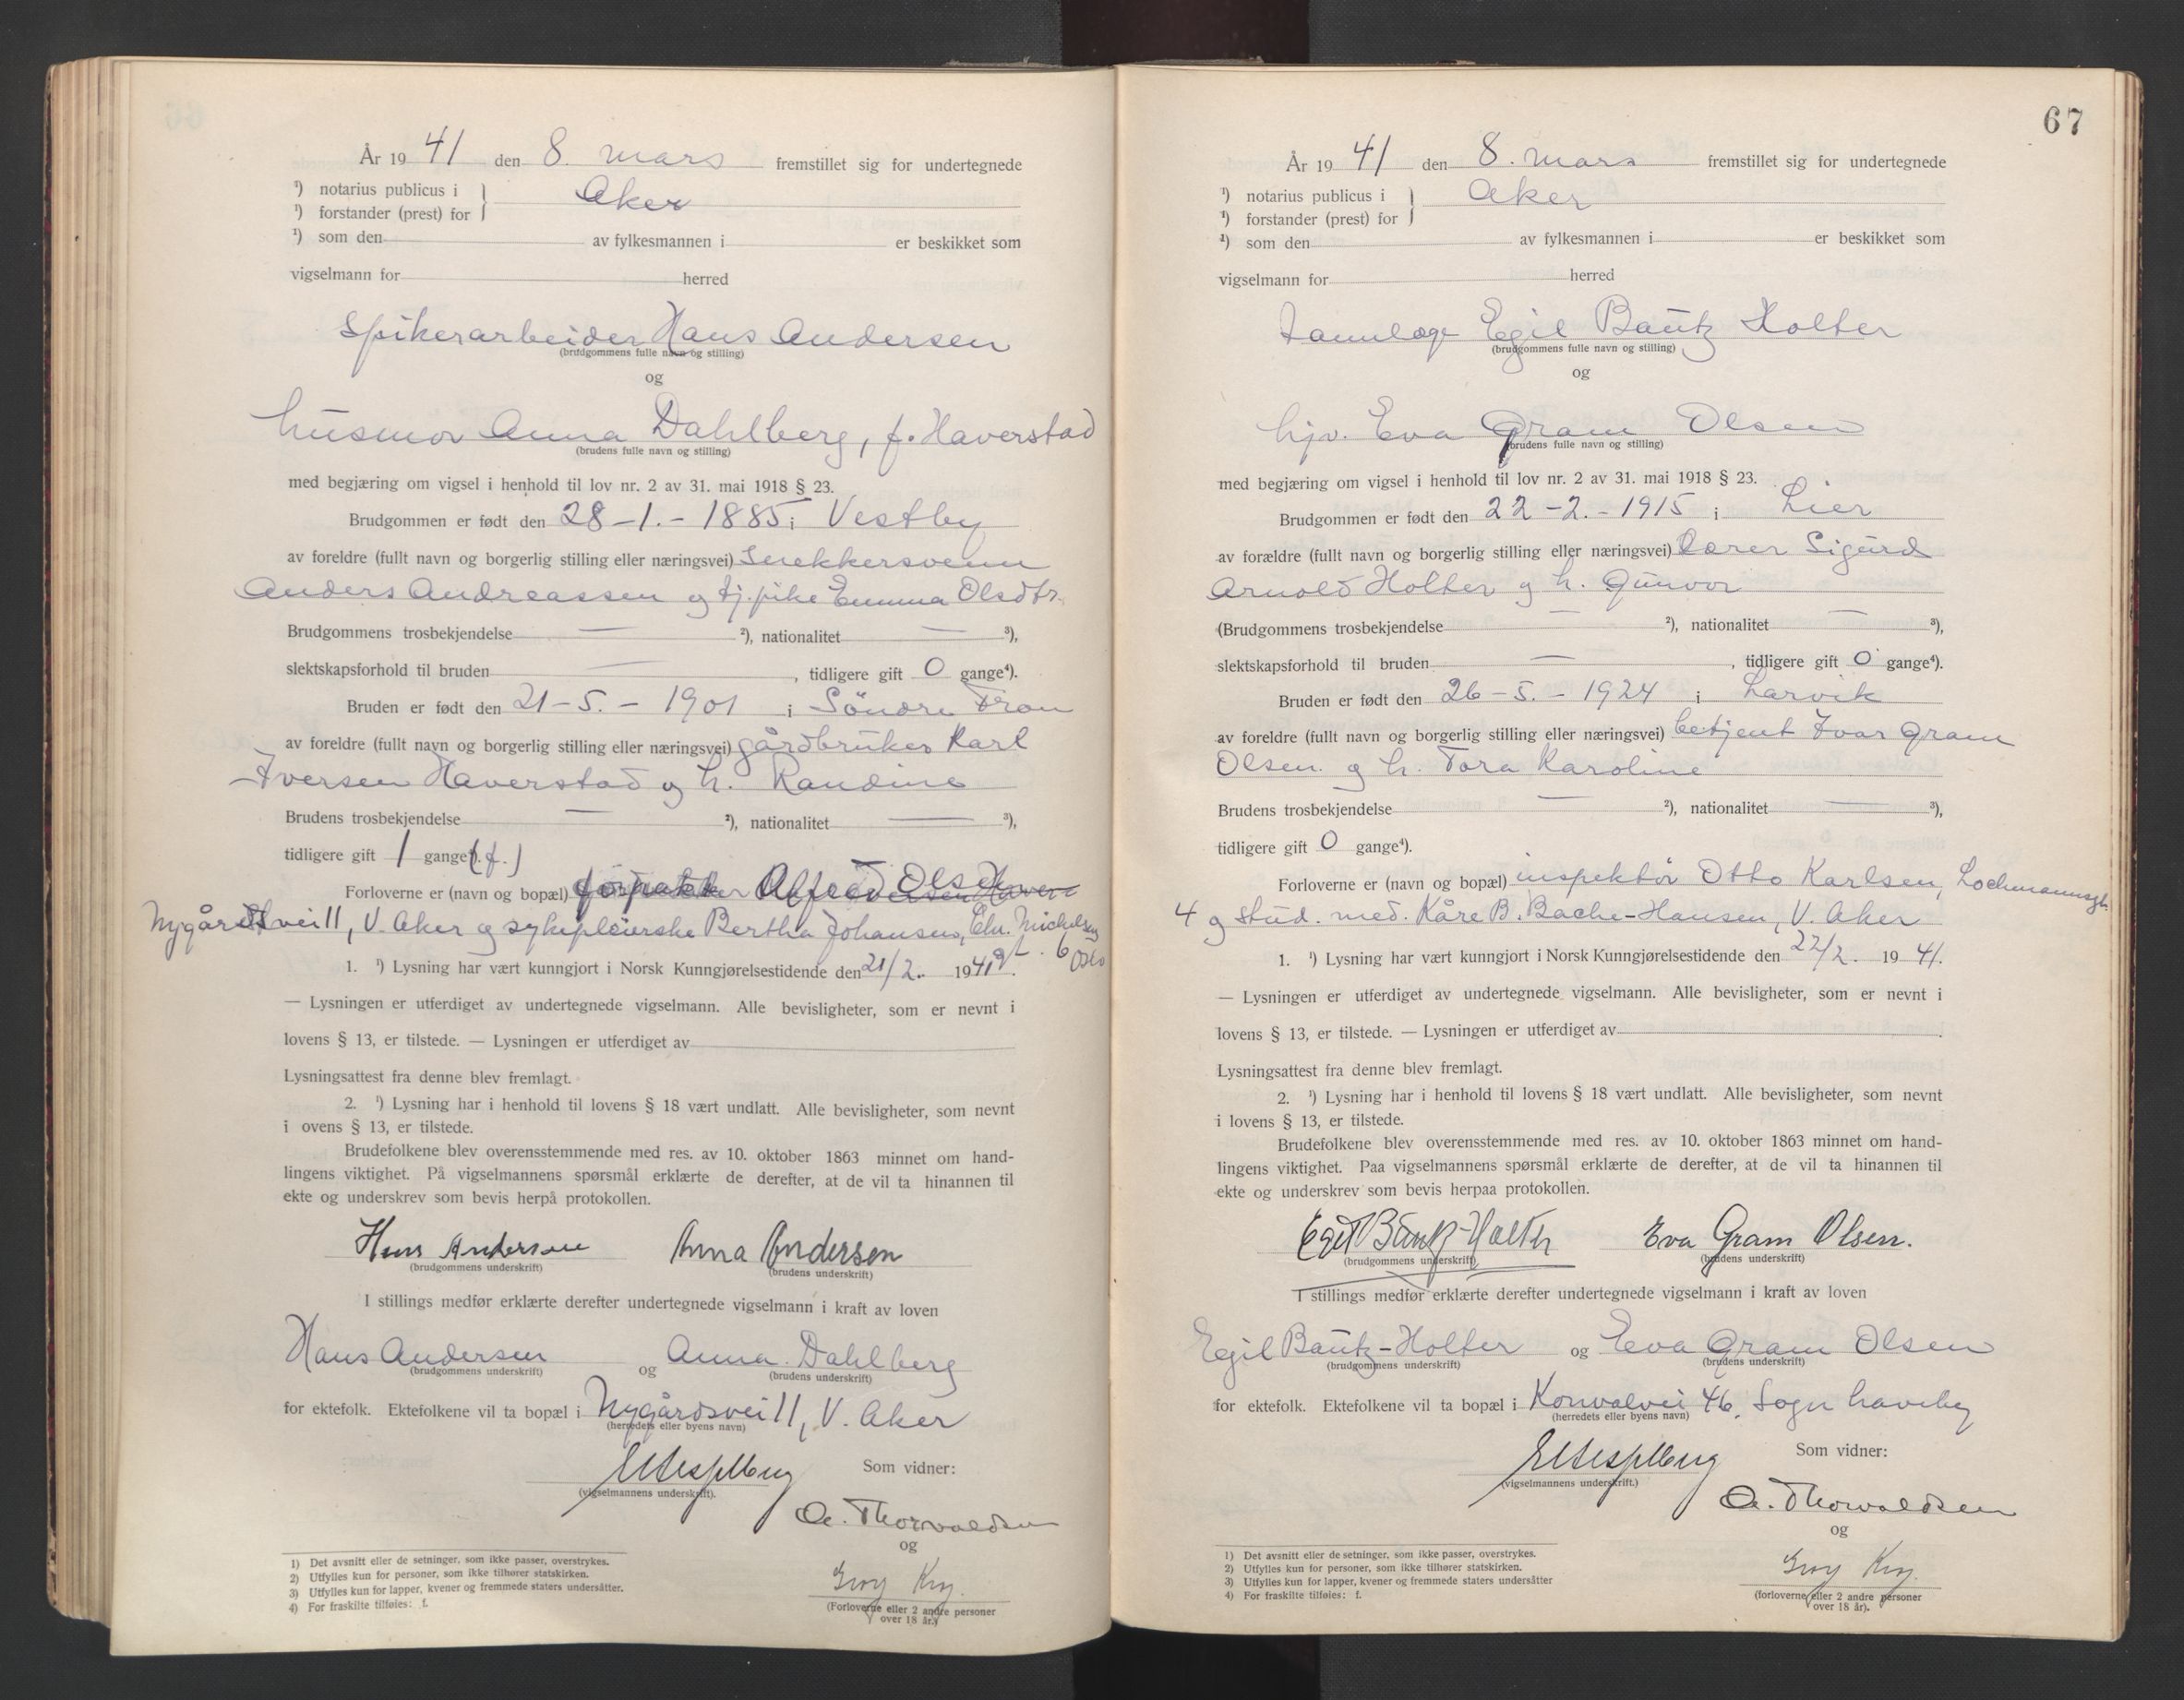 År 1941 den 8. mars fremstillet sig for undertegnede
¹) notarius publicus i } Aker
¹) forstander (prest) for
¹) som den av fylkesmannen i er beskikket som
vigselmann for herred
Spikerarbeider Hans Andersen
(brudgommens fulle navn og stilling)
og
husmor Anna Dahlberg, f. Haverstad
(brudens fulle navn og stilling)
med begjæring om vigsel i henhold til lov nr. 2 av 31. mai 1918 § 23.
Brudgommen er født den 28-1.-1885 i Vestby
av foreldre (fullt navn og borgerlig stilling eller næringsvei) Snekkersvenn
Anders Andreassen og tj.pike Emma Olsdtr.
Brudgommens trosbekjendelse — ²), nationalitet — ³),
slektskapsforhold til bruden — , tidligere gift 0 gange⁴).
Bruden er født den 21-5.-1901 i Söndre Fron
av foreldre (fullt navn og borgerlig stilling eller næringsvei) gårdbruker Karl
Iversen Haverstad og h. Randine
Brudens trosbekjendelse — ²), nationalitet — ³),
tidligere gift 1 gange (f.)
Forloverne er (navn og bopæl) Alfred Olsen
Nygårdsvei 11, V. Aker og sykepleierske Bertha Johansen, Chr. Michelsens
gt. 6 Oslo
1. ¹) Lysning har vært kunngjort i Norsk Kunngjørelsestidende den 21/2. 1941.
— Lysningen er utferdiget av undertegnede vigselmann. Alle bevisligheter, som er nevnt i
lovens § 13, er tilstede. — Lysningen er utferdiget av
Lysningsattest fra denne blev fremlagt.
2. ¹) Lysning har i henhold til lovens § 18 vært undlatt. Alle bevisligheter, som nevnt
i ovens § 13, er tilstede.
Brudefolkene blev overensstemmende med res. av 10. oktober 1863 minnet om hand-
lingens viktighet. På vigselmannens spørsmål erklærte de derefter, at de vil ta hinannen til
ekte og underskrev som bevis herpå protokollen.
Hans Andersen Anna Andersen
(brudgommens underskrift) (brudens underskrift)
I stillings medfør erklærte derefter undertegnede vigselmann i kraft av loven
Hans Andersen og Anna Dahlberg
(brudgommens underskrift) (brudens underskrift)
for ektefolk. Ektefolkene vil ta bopæl i Nygårdsvei 11, V. Aker
(herredets eller byens navn)
Som vidner:
(vigselmannens underskrift).
A. Thorvaldsen
og
(Forloverne eller 2 andre personer
over 18 år.)
1) Det avsnitt eller de setninger, som ikke passer, overstrykes.
2) Utfylles kun for personer, som ikke tilhører statskirken.
3) Utfylles kun for lapper, kvener og fremmede staters undersåtter.
4) For fraskilte tilføies: f.
67
År 1941 den 8. mars fremstillet sig for undertegnede
¹) notarius publicus i } Aker
¹) forstander (prest) for
¹) som den av fylkesmannen i er beskikket som
vigselmann for herred
Tannlæge Egil Bautz Holter
(brudgommens fulle navn og stilling)
og
hjv. Eva Gram Olsen
(brudens fulle navn og stilling)
med begjæring om vigsel i henhold til lov nr. 2 av 31. mai 1918 § 23.
Brudgommen er født den 22-2.-1915 i Lier
av forældre (fullt navn og borgerlig stilling eller næringsvei) lærer Sigurd
Arnold Holter og h. Gunvor
(Brudgommens trosbekjendelse — ²), nationalitet — ³),
slektskapsforhold til bruden — , tidligere gift 0 gange⁴).
Bruden er født den 26-5.-1924 i Larvik
av foreldre (fullt navn og borgerlig stilling eller næringsvei) betjent Ivar Gram
Olsen og h. Tora Karoline
Brudens trosbekjendelse — ²), nationalitet — ³),
tidligere gift 0 gange⁴).
Forloverne er (navn og bopæl) inspektör Otto Karlsen, Lochmannsgt.
4 og stud. med. Kåre B. Bache-Hansen, V. Aker
1. ¹) Lysning har vært kunngjort i Norsk Kunngjørelsestidende den 22/2. 1941.
— Lysningen er utferdiget av undertegnede vigselmann. Alle bevisligheter, som er nevnt i
lovens § 13, er tilstede. — Lysningen er utferdiget av .
Lysningsattest fra denne blev fremlagt.
2. ¹) Lysning har i henhold til lovens § 18 vært undlatt. Alle bevisligheter, som nevnt
i lovens § 13, er tilstede.
Brudefolkene blev overensstemmende med res. av 10. oktober 1863 minnet om hand-
lingens viktighet. Paa vigselmannens spørsmål erklærte de derefter, at de vil ta hinannen til
ekte og underskrev som bevis herpaa protokollen.
Egil Bautz-Holter Eva Gram Olsen.
(brudgommens underskrift) (brudens underskrift)
I stillings medfør erklærte derefter undertegnede vigselmann i kraft av loven
Egil Bautz-Holter og Eva Gram Olsen
(brudgommens underskrift) (brudens underskrift)
for ektefolk. Ektefolkene vil ta bopæl i Konvalvei 46, Sogn haveby
(herredets eller byens navn)
Som vidner:
(vigselmannens underskrift.)
A. Thorvaldsen
og
(forloverne eller 2 andre personer
over 18 år).
1) Det avsnitt eller de setninger, som ikke passer, overstrykes.
2) Utfylles kun for personer, som ikke tilhører statskirken.
3) Utfylles kun for lapper, kvener og fremmede staters undersåtter
4) For fraskilte tilføies: f.